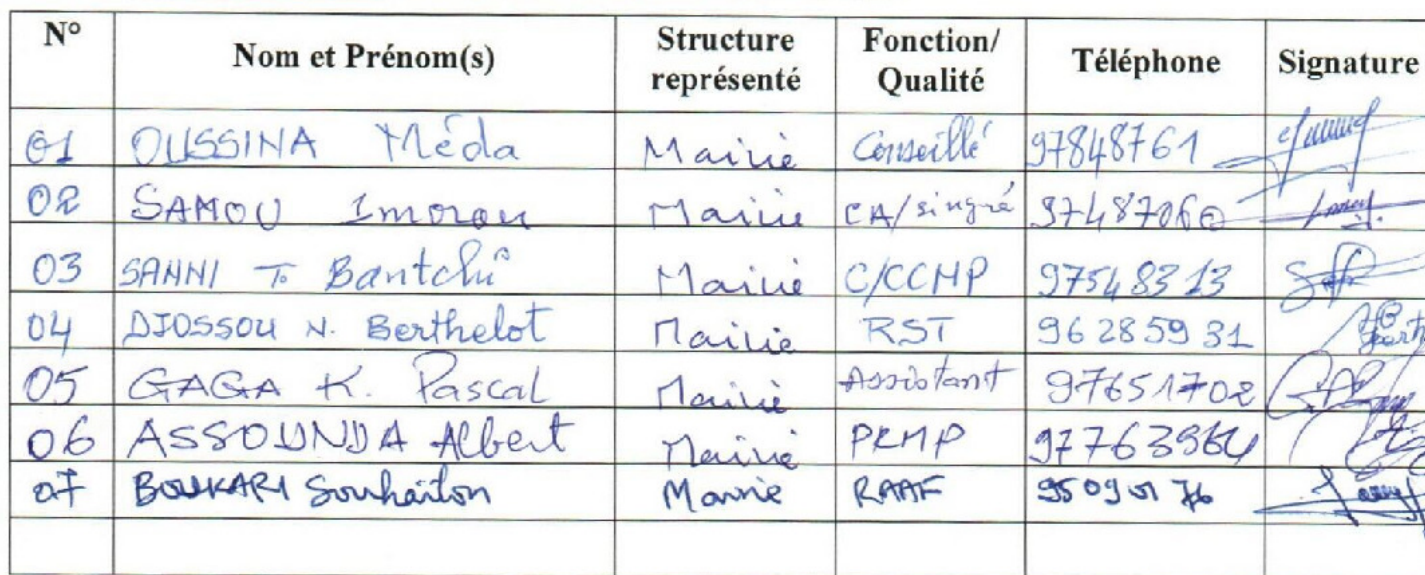 N° Nom et Prénom(s) Structure représenté Fonction/ Qualité Téléphone Signature
01 OUSSINA Méda Mairie Conseillé 97848761
02 SAMOU Imorou Mairie CA/singré 97487060
03 SANNI T. Bantchi Mairie C/CCMP 97548313
04 DJOSSOU N. Berthelot Mairie RST 96285931
05 GAGA K. Pascal Mairie Assistant 97651702
06 ASSOUNDA Albert Mairie PRMP 97763964
07 BOUKARI Souhaiton Mairie RAAF 95090176